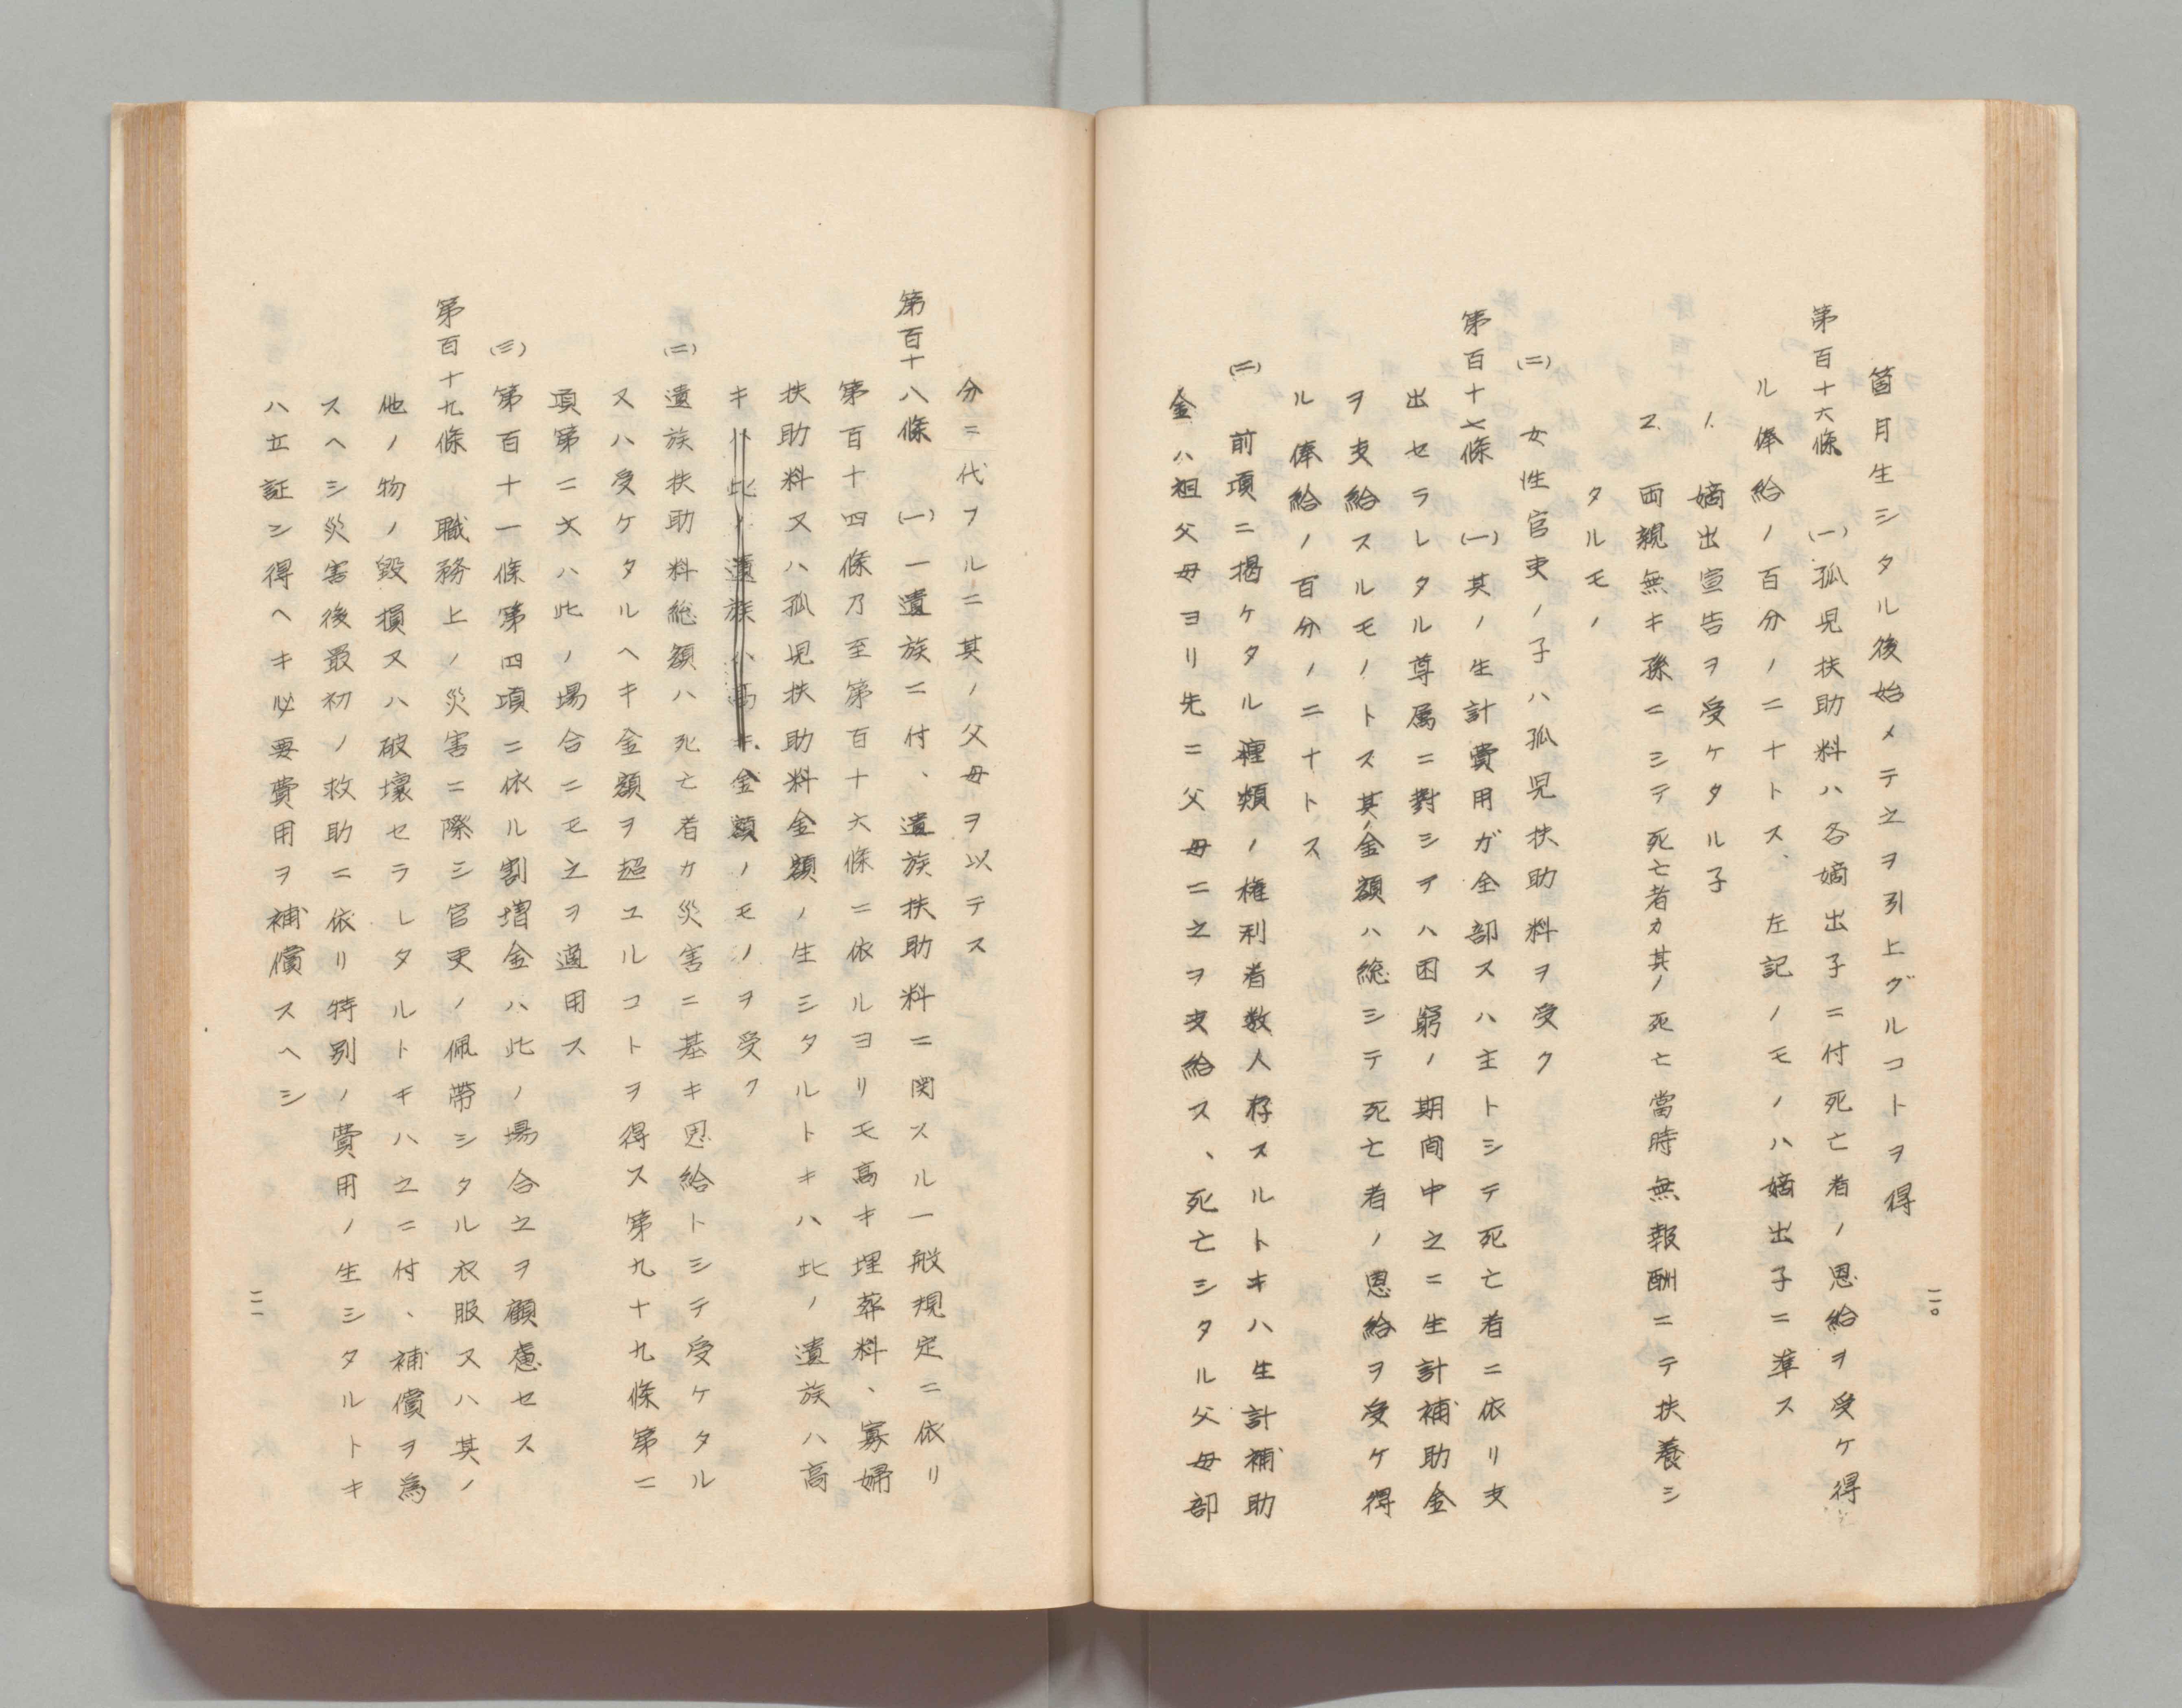 箇月生シタル後始メテ之ヲ引上グルコトヲ得
第百十六條 (一)孤児扶助料ハ各嫡出子ニ付死亡者ノ恩給ヲ受ケ得
ル俸給ノ百分ノ二十トス、左記ノモノハ嫡出子ニ準ス
1. 嫡出宣告ヲ受ケタル子
2. 両親無キ孫ニシテ死亡者カ其ノ死亡當時無報酬ニテ扶養シ
タルモノ
(二) 女性官吏ノ子ハ孤児扶助料ヲ受ク
第百十七條 (一)其ノ生計費用ガ全部又ハ主トシテ死亡者ニ依リ支
出セラレタル尊属ニ對シテハ困窮ノ期間中之ニ生計補助金
ヲ支給スルモノトス其ノ金額ハ総シテ死亡者ノ恩給ヲ受ケ得
ル俸給ノ百分ノ二十トス
(二) 前項ニ掲ケタル種類ノ権利者数人存スルトキハ生計補助
金ハ祖父母ヨリ先ニ父母ニ之ヲ支給ス、死亡シタル父母部
二〇
分ニ代フルニ其ノ父母ヲ以テス
第百十八條 (一)一遺族ニ付、遺族扶助料ニ関スル一般規定ニ依リ
第百十四條乃至第百十六條ニ依ルヨリモ高キ埋葬料、寡婦
扶助料又ハ孤児扶助料金額ノ生シタルトキハ此ノ遺族ハ高
キハ此ノ遺族ハ高キ金額ノモノヲ受ク
(二)遺族扶助料総額ハ死亡者カ災害ニ基キ恩給トシテ受ケタル
又ハ受ケタルヘキ金額ヲ超ユルコトヲ得ス第九十九條第二
項第二文ハ此ノ場合ニモ之ヲ適用ス
(三)第百十一條第四項ニ依ル割増金ハ此ノ場合之ヲ顧慮セス
第百十九條 職務上ノ災害ニ際シ官吏ノ佩帯シタル衣服又ハ其ノ
他ノ物ノ毀損又ハ破壊セラレタルトキハ之ニ付、補償ヲ為
スヘシ災害後最初ノ救助ニ依リ特別ノ費用ノ生シタルトキ
ハ立証シ得ヘキ必要費用ヲ補償スヘシ
二一